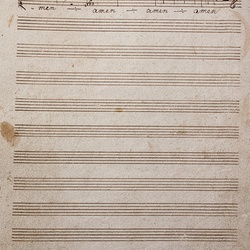 - men -+- amen -+- amen -+- amen